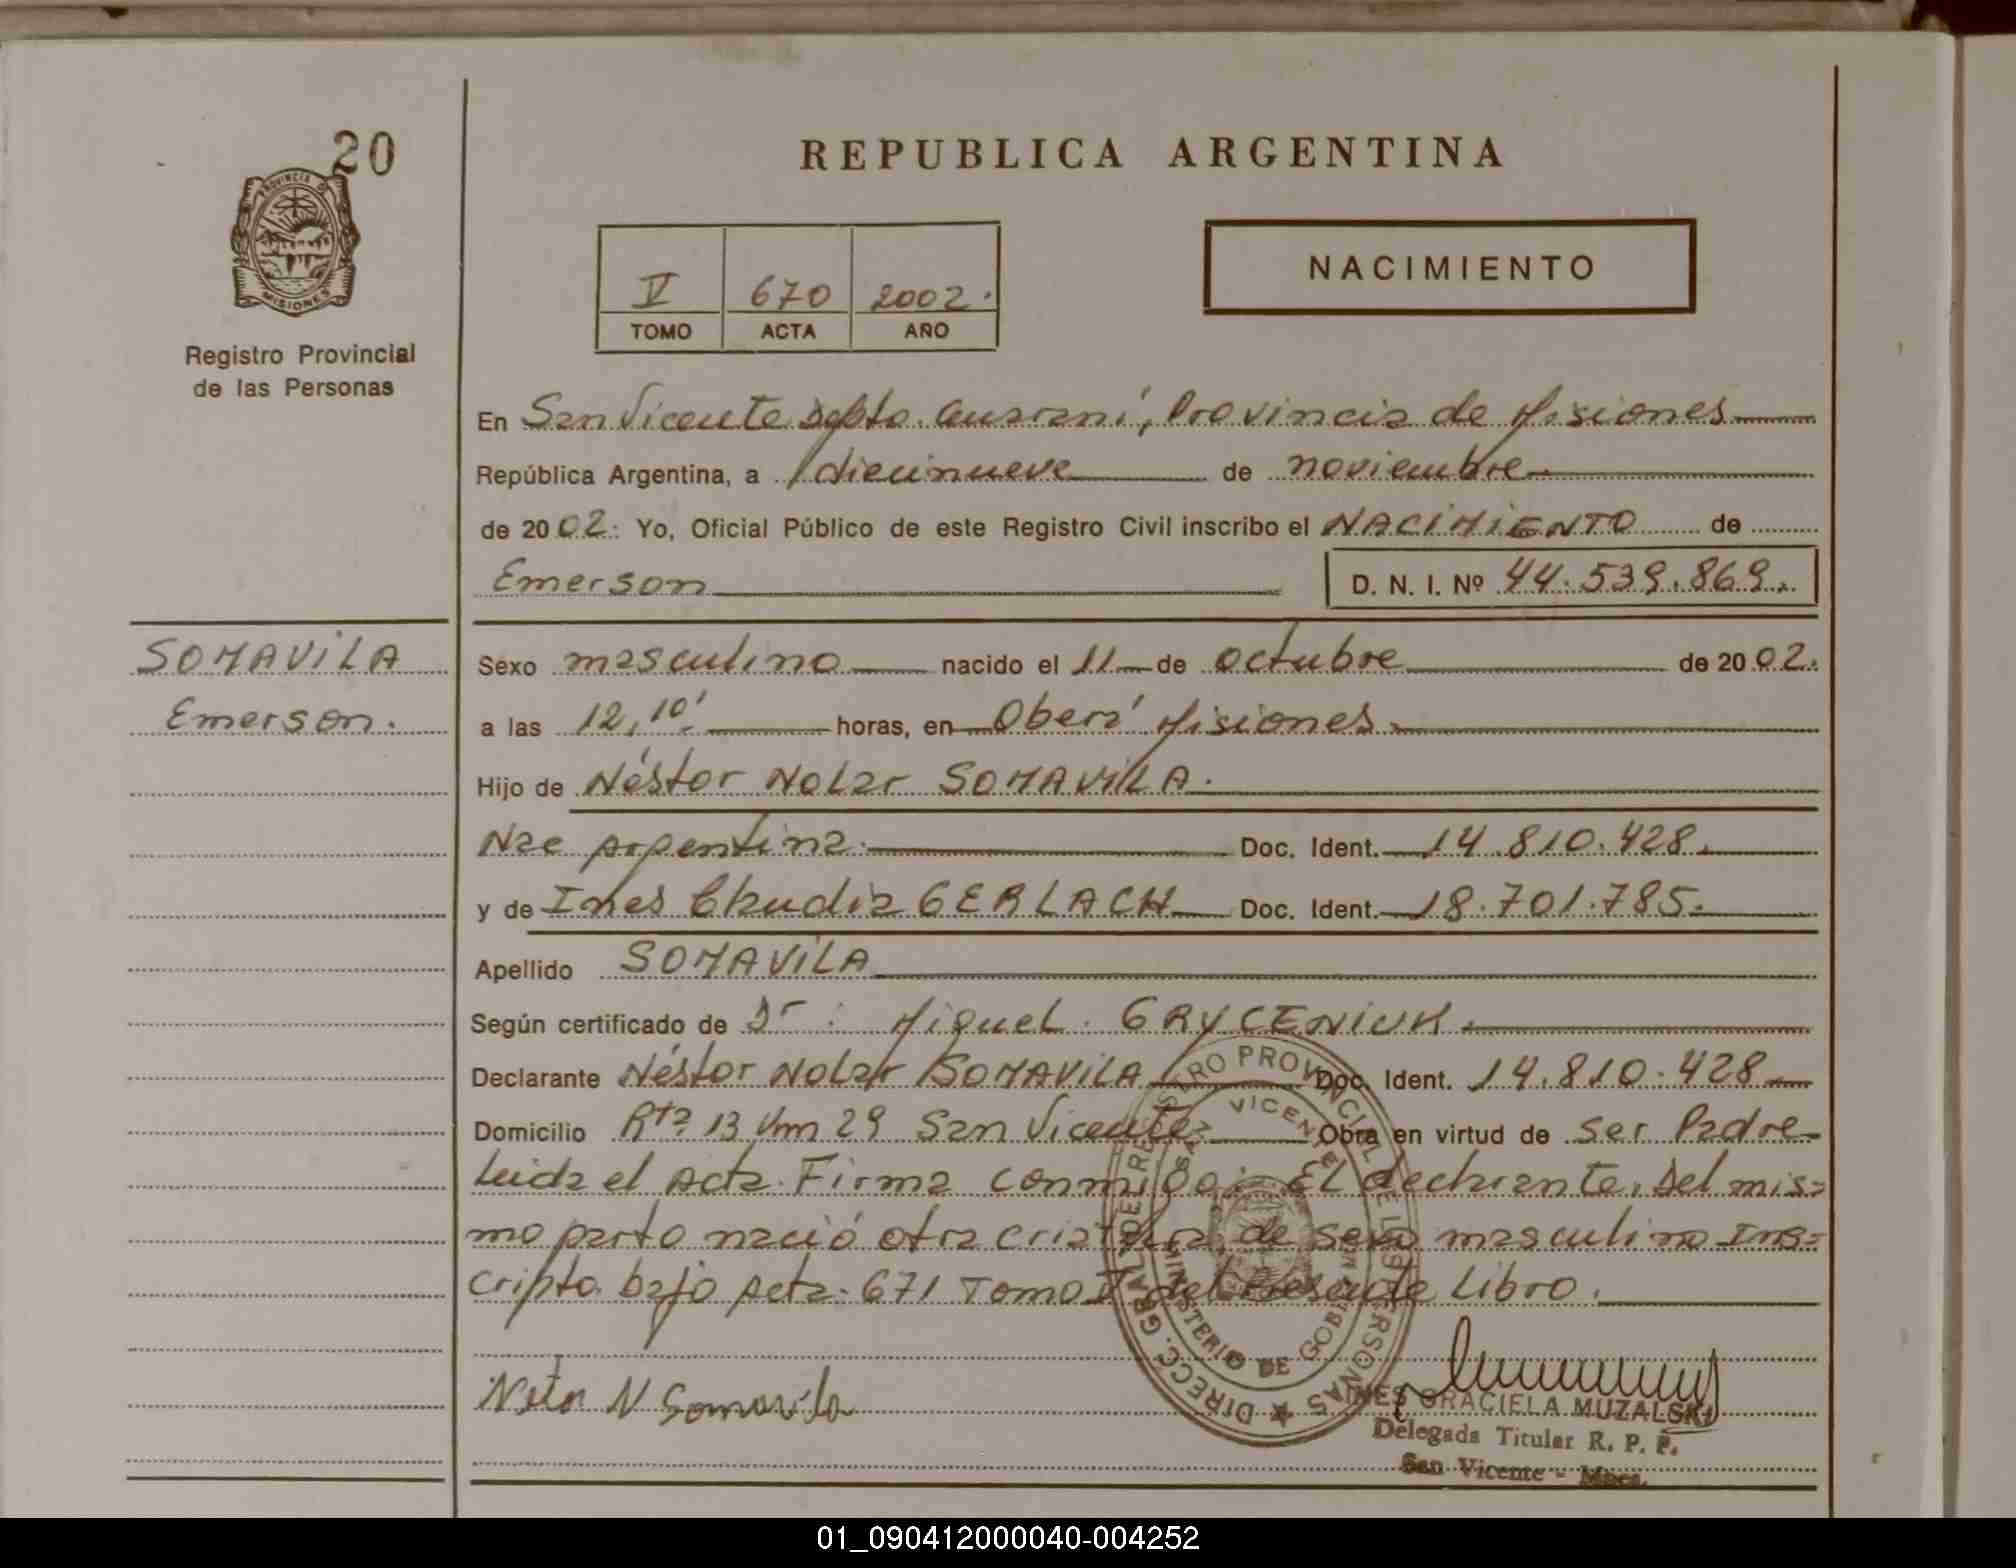 20
PROVINCIA DE
MISIONES
Registro Provincial
de las Personas
REPUBLICA ARGENTINA
V 670 2002.
TOMO ACTA AÑO
NACIMIENTO
En San Vicente Depto. Guaraní, Provincia de Misiones
República Argentina, a diecinueve de noviembre
de 2002. Yo, Oficial Público de este Registro Civil inscribo el NACIMIENTO de
Emerson D. N. I. Nº 44.539.869.
SOMAVILA
Emerson.
Sexo masculino nacido el 11 de octubre de 2002.
a las 12,10' horas, en Oberá Misiones
Hijo de Néstor Nolar SOMAVILA.
Nac Argentina. Doc. Ident. 14.810.428.
y de Ines Claudia GERLACH Doc. Ident. 18.701.785.
Apellido SOMAVILA
Según certificado de Dr: Miguel GRYCENIUK.
Declarante Néstor Nolar SOMAVILA Doc. Ident. 14.810.428
Domicilio Rta 13 Km 29 San Vicente Obra en virtud de ser Padre
Leida el Acta. Firma conmigo: El declarante. Del mis=
mo parto nació otra criatura, de sexo masculino Ins=
cripto bajo Acta: 671 Tomo V del Presente Libro.
N Somavila
DIRECC. GRAL. DE REGISTRO PROVINCIAL DE LAS PERSONAS
SAN VICENTE
MINISTERIO DE GOBIERNO
INES GRACIELA MUZALSKI
Delegada Titular R. P. P.
San Vicente - Mnes.
01_090412000040-004252